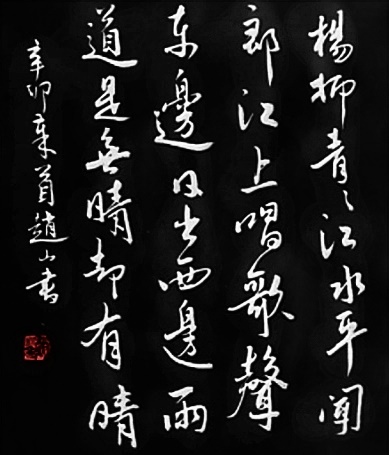 楊柳青〻江水平聞
郎江上唱歌聲
東邊日出西邊雨
道是無晴却有晴
辛卯年首趙山書